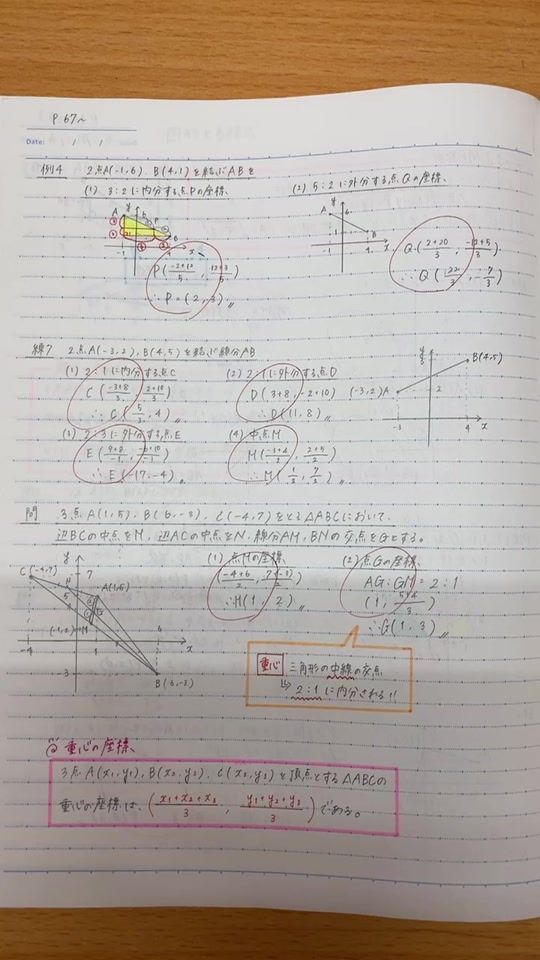 P.67~
Date: / /
例4 2点A(-1,6), B(4,1)を結ぶABを
(1) 3:2に内分する点Pの座標、 (2) 5:2に外分する点Qの座標、
P(-2+12/5, 12+3/5) Q(2+20/3, -12+5/3)
∴P=(2,3)〃 ∴Q(22/3, -7/3)
練7 2点A(-3,2), B(4,5)を結ぶ線分AB
(1) 2:1に内分する点C (2) 2:1に外分する点D
C(-3+8/3, 2+10/3) D(3+8, -2+10)
∴C(5/3, 4)〃 ∴D(11,8)〃
B(4,5)
(-3,2)A
(3) 2:3に外分する点E (4) 中点M
M(-3+4/2, 2+5/2)
∴E(-17,-4)〃 ∴M(1/2, 7/2)〃
問 3点A(1,5), B(6,-3), C(-4,7)をとる△ABCにおいて、
辺BCの中点をM, 辺ACの中点をN, 線分AM, BNの交点をGとする。
(1) 点Mの座標、 (2) 点Gの座標、
C(-4,7)
A(1,5)
(-4+6/2, 7+(-3)/2) AG:GM=2:1
(1, 5+4/3)
∴M(1, 2)〃 ∴G(1,3)〃
重心 三角形の中線の交点
↳ 2:1に内分される!!
重心の座標、
3点A(x₁,y₁), B(x₂,y₂), C(x₃,y₃)を頂点とする△ABCの
重心の座標は、(x₁+x₂+x₃/3, y₁+y₂+y₃/3)である。